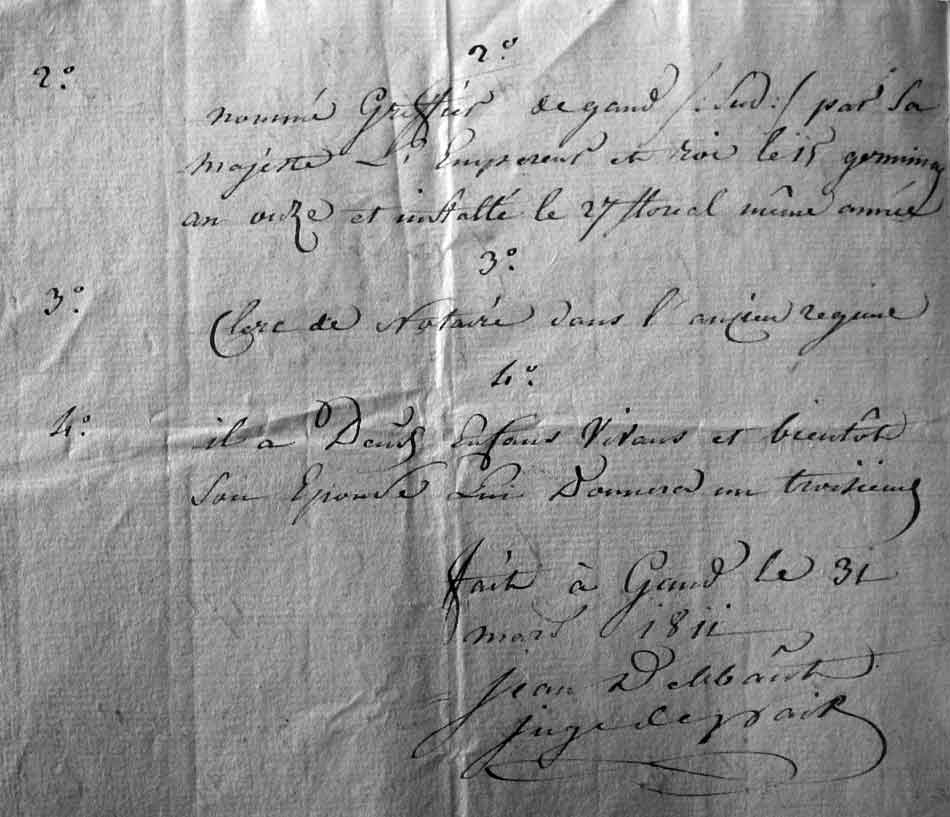 2.°
2.°
nommé Greffier de gand /: Sud :/ par Sa
majesté L'Empereur et Roi le 15 germinal
an onze et installé le 27 floreal même année
3.°
3.°
Clerc de Notaire dans l'ancien regime
4.°
4.°
il a Deux Enfans Vivans et bientôt
Son Epouse Lui Donnera un troisieme
fait à Gand le 31
mars 1811
jean Debbaudt
juge de paix